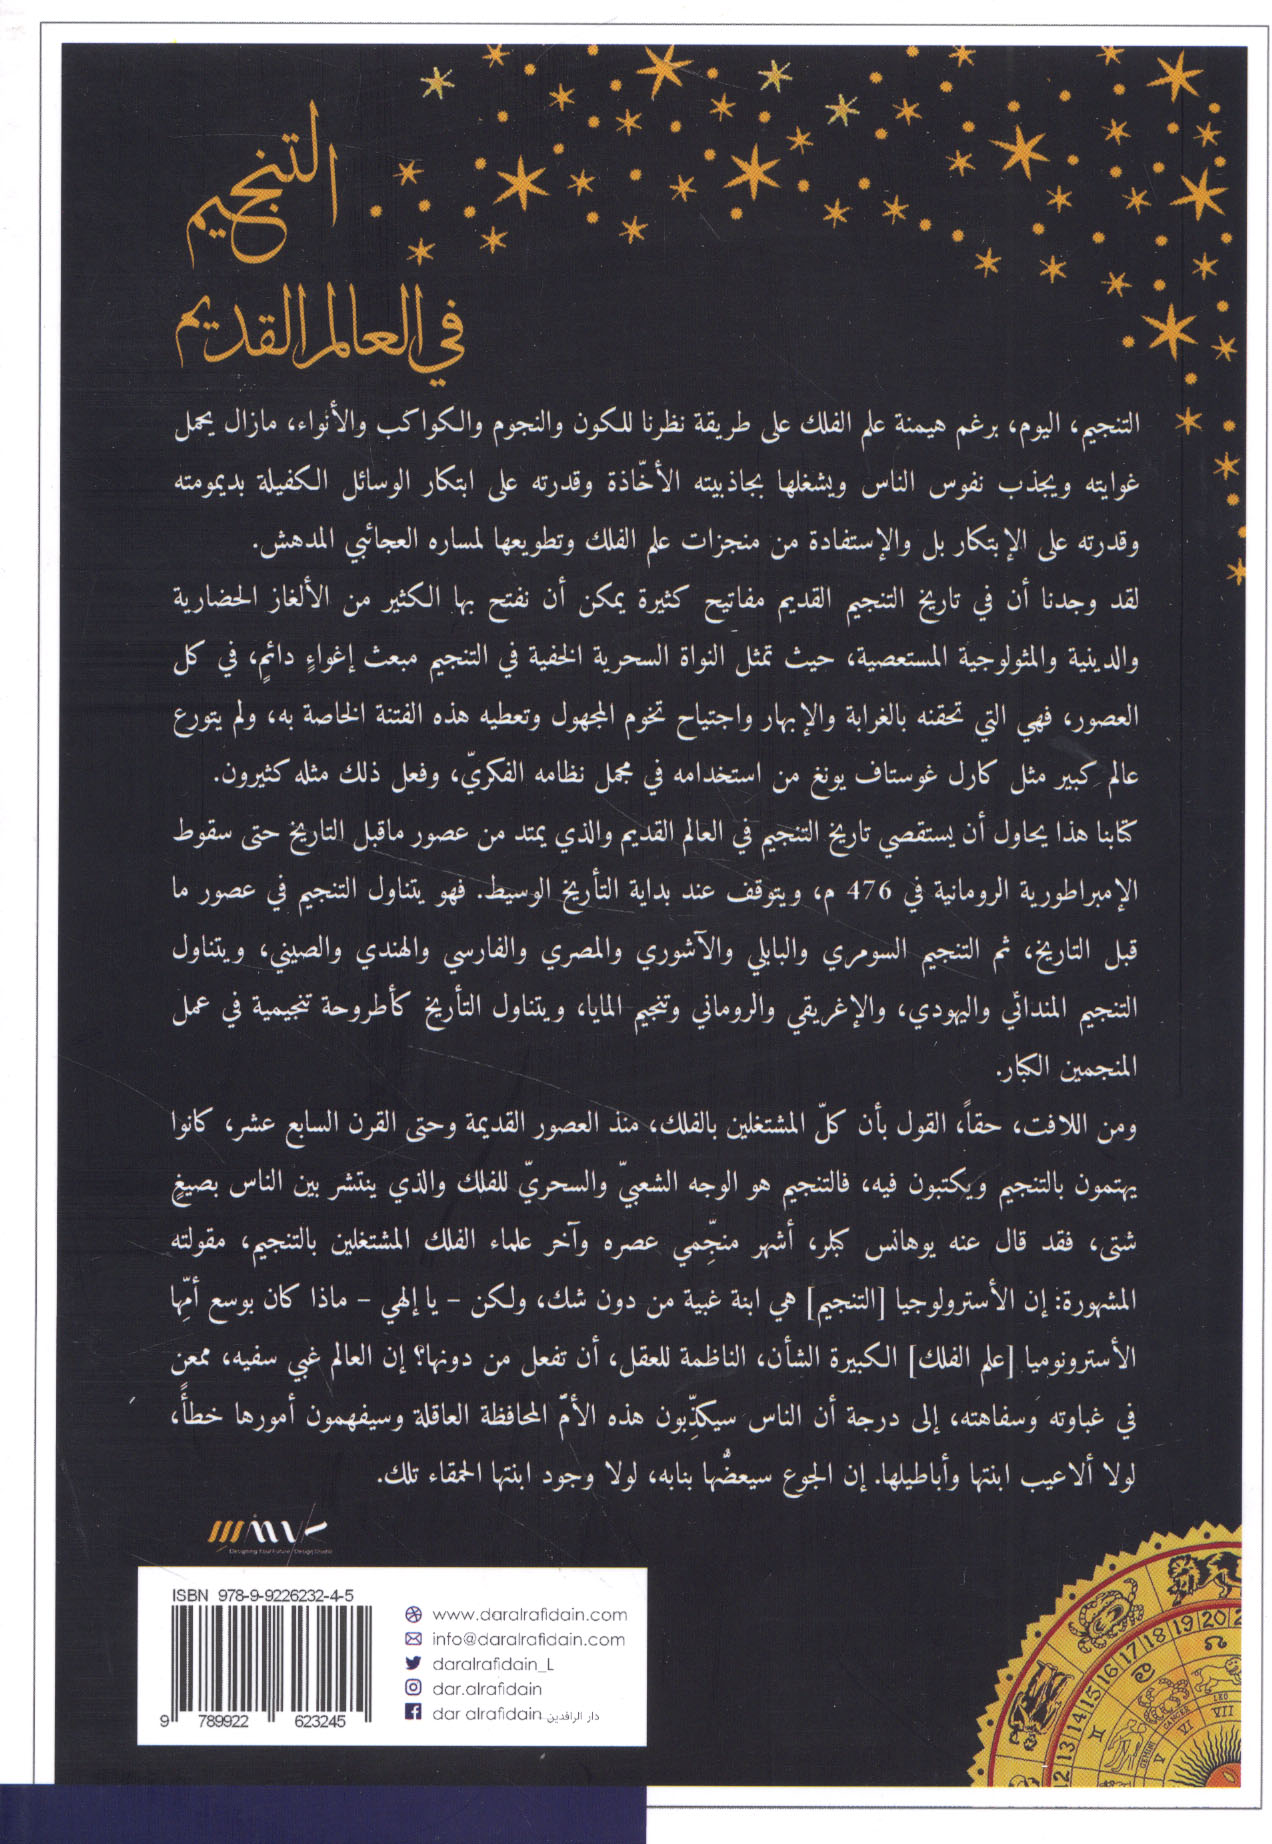 التنجيم
في العالم القديم
التنجيم، اليوم، برغم هيمنة علم الفلك على طريقة نظرنا للكون والنجوم والكواكب والأنواء، مازال يحمل
غوايته ويجذب نفوس الناس ويشغلها بجاذبيته الأخّاذة وقدرته على ابتكار الوسائل الكفيلة بديمومته
وقدرته على الإبتكار بل والإستفادة من منجزات علم الفلك وتطويعها لمساره العجائبي المدهش.
لقد وجدنا أن في تاريخ التنجيم القديم مفاتيح كثيرة يمكن أن نفتح بها الكثير من الألغاز الحضارية
والدينية والمثولوجية المستعصية، حيث تمثل النواة السحرية الخفية في التنجيم مبعث إغواءٍ دائمٍ، في كل
العصور، فهي التي تحقنه بالغرابة والإبهار واجتياح تخوم المجهول وتعطيه هذه الفتنة الخاصة به، ولم يتورع
عالم كبير مثل كارل غوستاف يونغ من استخدامه في مجمل نظامه الفكريّ، وفعل ذلك مثله كثيرون.
كتابنا هذا يحاول أن يستقصي تاريخ التنجيم في العالم القديم والذي يمتد من عصور ماقبل التاريخ حتى سقوط
الإمبراطورية الرومانية في 476 م، ويتوقف عند بداية التأريخ الوسيط. فهو يتناول التنجيم في عصور ما
قبل التاريخ، ثم التنجيم السومري والبابلي والآشوري والمصري والفارسي والهندي والصيني، ويتناول
التنجيم المندائي واليهودي، والإغريقي والروماني وتنجيم المايا، ويتناول التأريخ كأطروحة تنجيمية في عمل
المنجمين الكبار.
ومن اللافت، حقاً، القول بأن كلّ المشتغلين بالفلك، منذ العصور القديمة وحتى القرن السابع عشر، كانوا
يهتمون بالتنجيم ويكتبون فيه، فالتنجيم هو الوجه الشعبيّ والسحريّ للفلك والذي ينتشر بين الناس بصيغٍ
شتى، فقد قال عنه يوهانس كبلر، أشهر منجّمي عصره وآخر علماء الفلك المشتغلين بالتنجيم، مقولته
المشهورة: إن الأسترولوجيا [التنجيم] هي ابنة غبية من دون شك، ولكن – يا إلهي – ماذا كان بوسع أمّها
الأسترونوميا [علم الفلك] الكبيرة الشأن، الناظمة للعقل، أن تفعل من دونها؟ إن العالم غبي سفيه، ممعن
في غباوته وسفاهته، إلى درجة أن الناس سيكذّبون هذه الأمّ المحافظة العاقلة وسيفهمون أمورها خطأً،
لولا ألاعيب ابنتها وأباطيلها. إن الجوع سيعضّها بنابه، لولا وجود ابنتها الحمقاء تلك.
ISBN 978-9-9226232-4-5
9 789922 623245
www.daralrafidain.com
info@daralrafidain.com
daralrafidain_L
dar.alrafidain
dar alrafidain دار الرافدين
12 13 14 15 16 17 18 19 20 2
LEO
CANCER
GEMINI
V VI VII